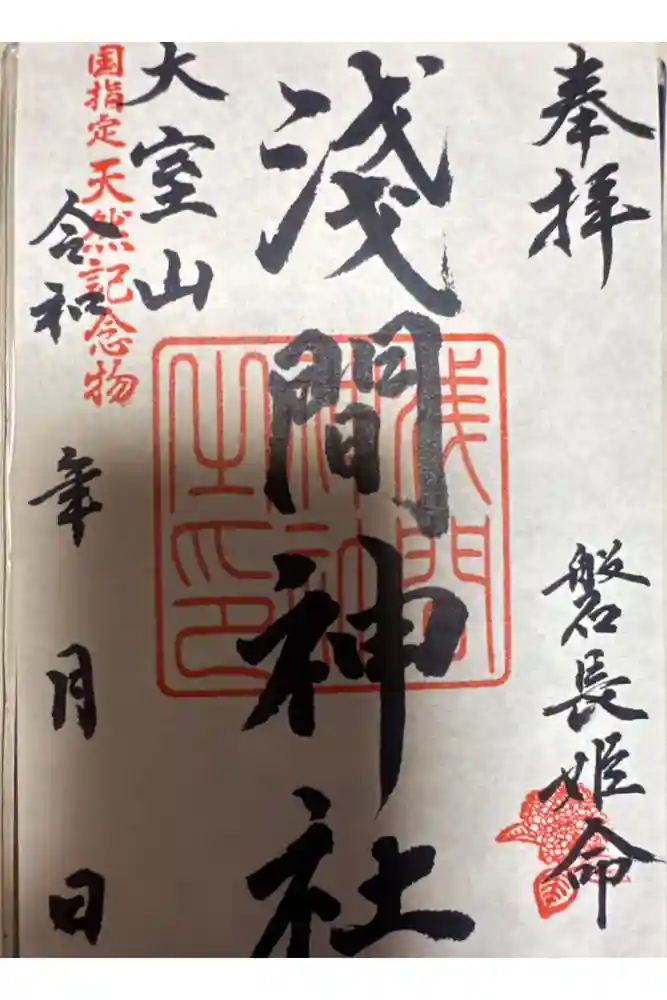 奉拝
磐長姫命
浅間神社
浅間神社之印
大室山
国指定天然記念物
令和 年 月 日